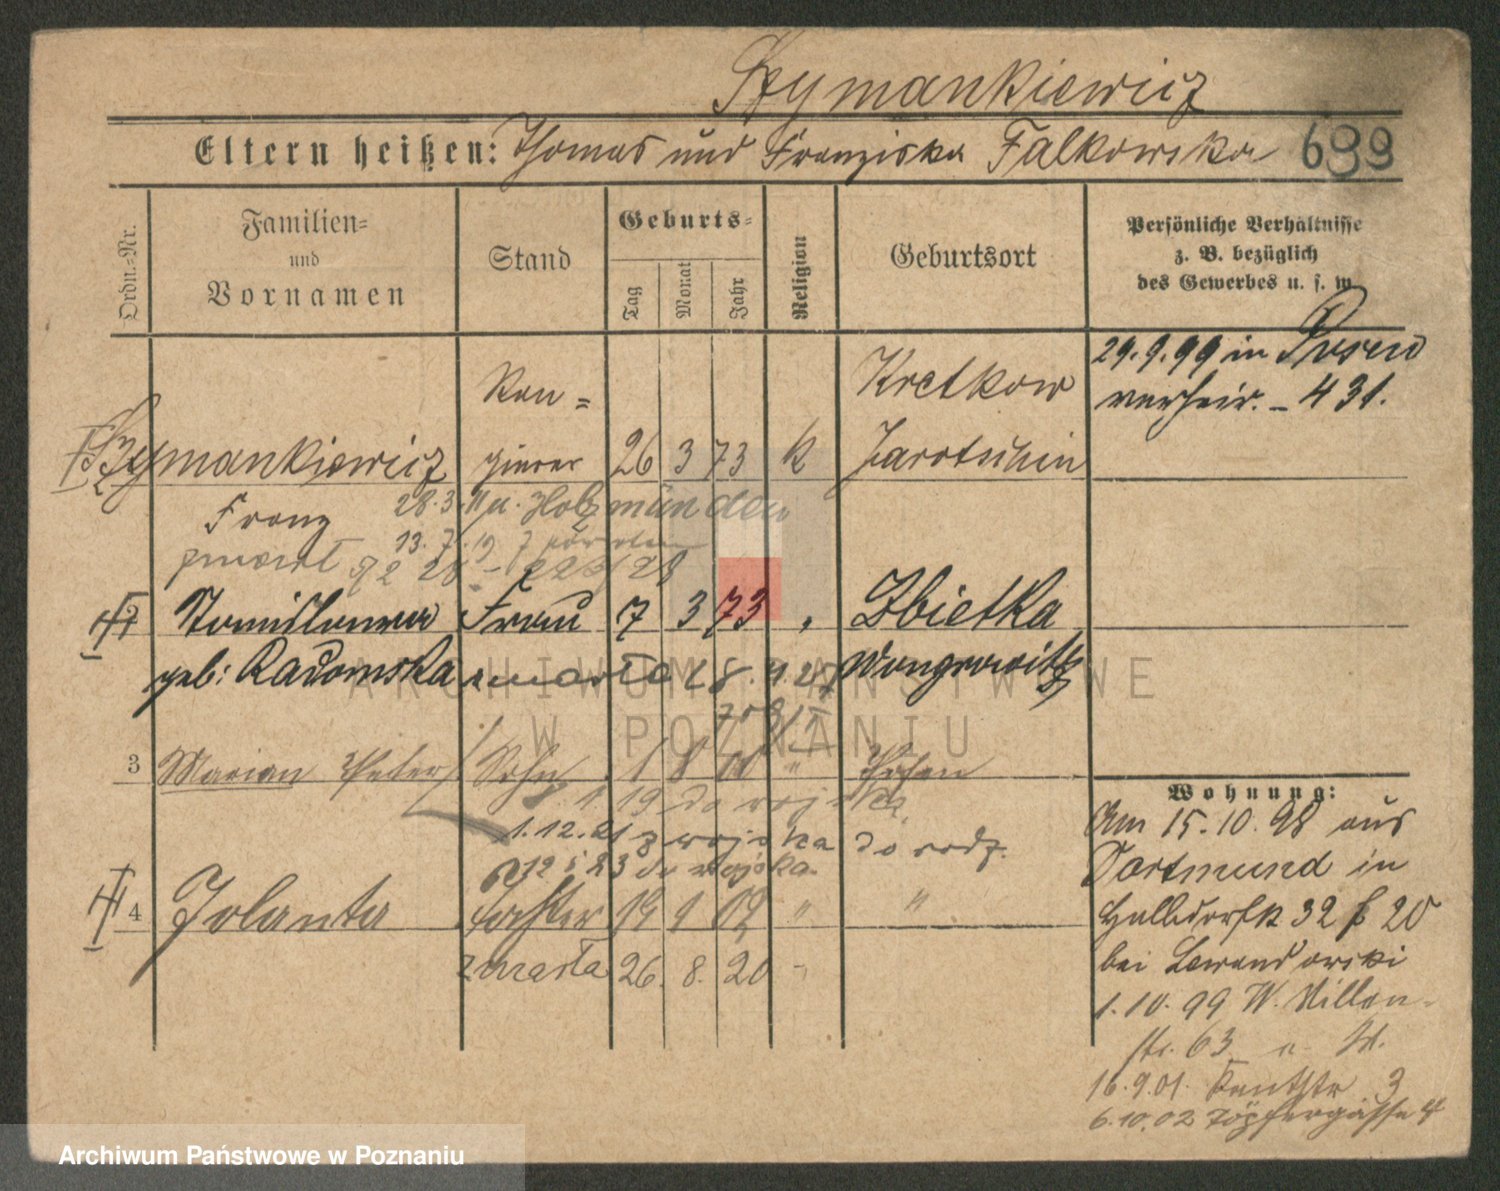 Szymankiewicz
Eltern heißen: Thomas und Franziska Falkowska 699
Ordn.-Nr.
Familien- und Vornamen
Stand
Geburts-
Tag
Monat
Jahr
Religion
Geburtsort
Persönliche Verhältnisse
z. B. bezüglich
des Gewerbes u. s. w.
29.9.99 in Posen
verheir. – 431.
Ran=
Kretkow
Szymankiewicz gierer 26 3 73 k Jarotschin
Franz 28.3. n. Holzmünden
13. 7. 19
2 Stanislawa Frau 7 3 73 Zbietka
geb: Radomska zmarła 28. 4. 27 Wongrowitz
3 Marian Peter Sohn 1 8 00 " Posen
19 do wojska
1.12.21 z wojska do rodz.
do wojska.
4 Jolanta Tochter 19 1 02 " "
zmarła 26. 8. 20
Wohnung:
Am 15.10.98 aus
Dortmund in
Halbdorfstr 32 20
bei Lewandowski
1.10.99 W. Villen-
str. 63
16.9.01. Kantstr 3
6.10.02 Töpfergasse 4
ARCHIWUM PAŃSTWOWE
W POZNANIU
Archiwum Państwowe w Poznaniu